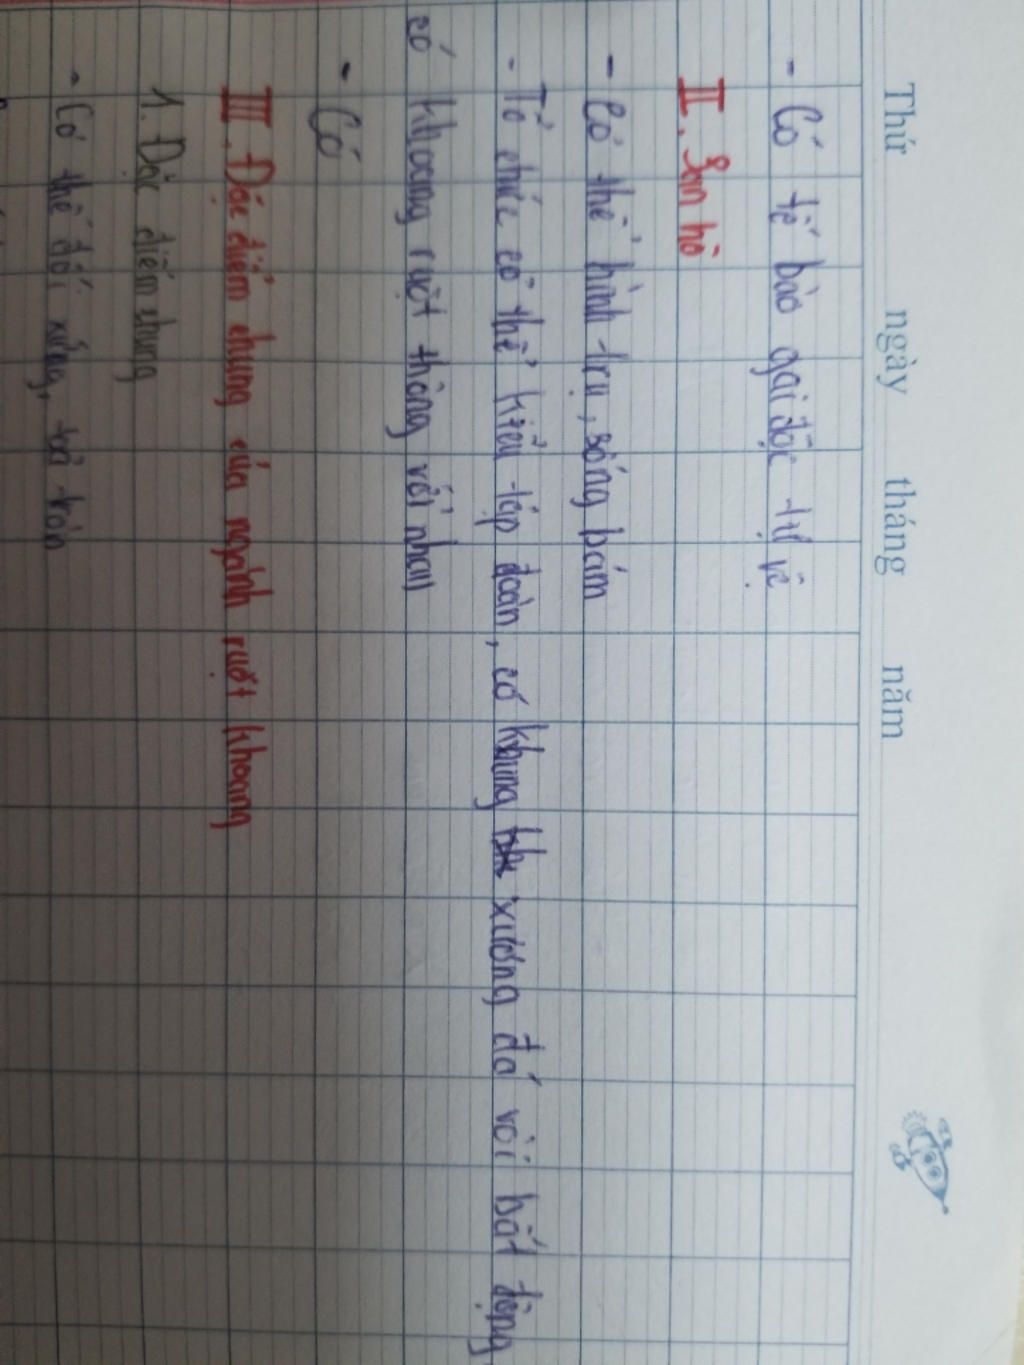 Thứ ngày tháng năm
- Có tế bào gai độc tự vệ
II. San hô
- Cơ thể hình trụ, sống bám
- Tổ chức cơ thể kiểu tập đoàn, có khung xương đá vôi bất động,
có khoang ruột thông với nhau
- Có
III. Đặc điểm chung của ngành ruột khoang
1. Đặc điểm chung
- Cơ thể đối xứng, toả tròn